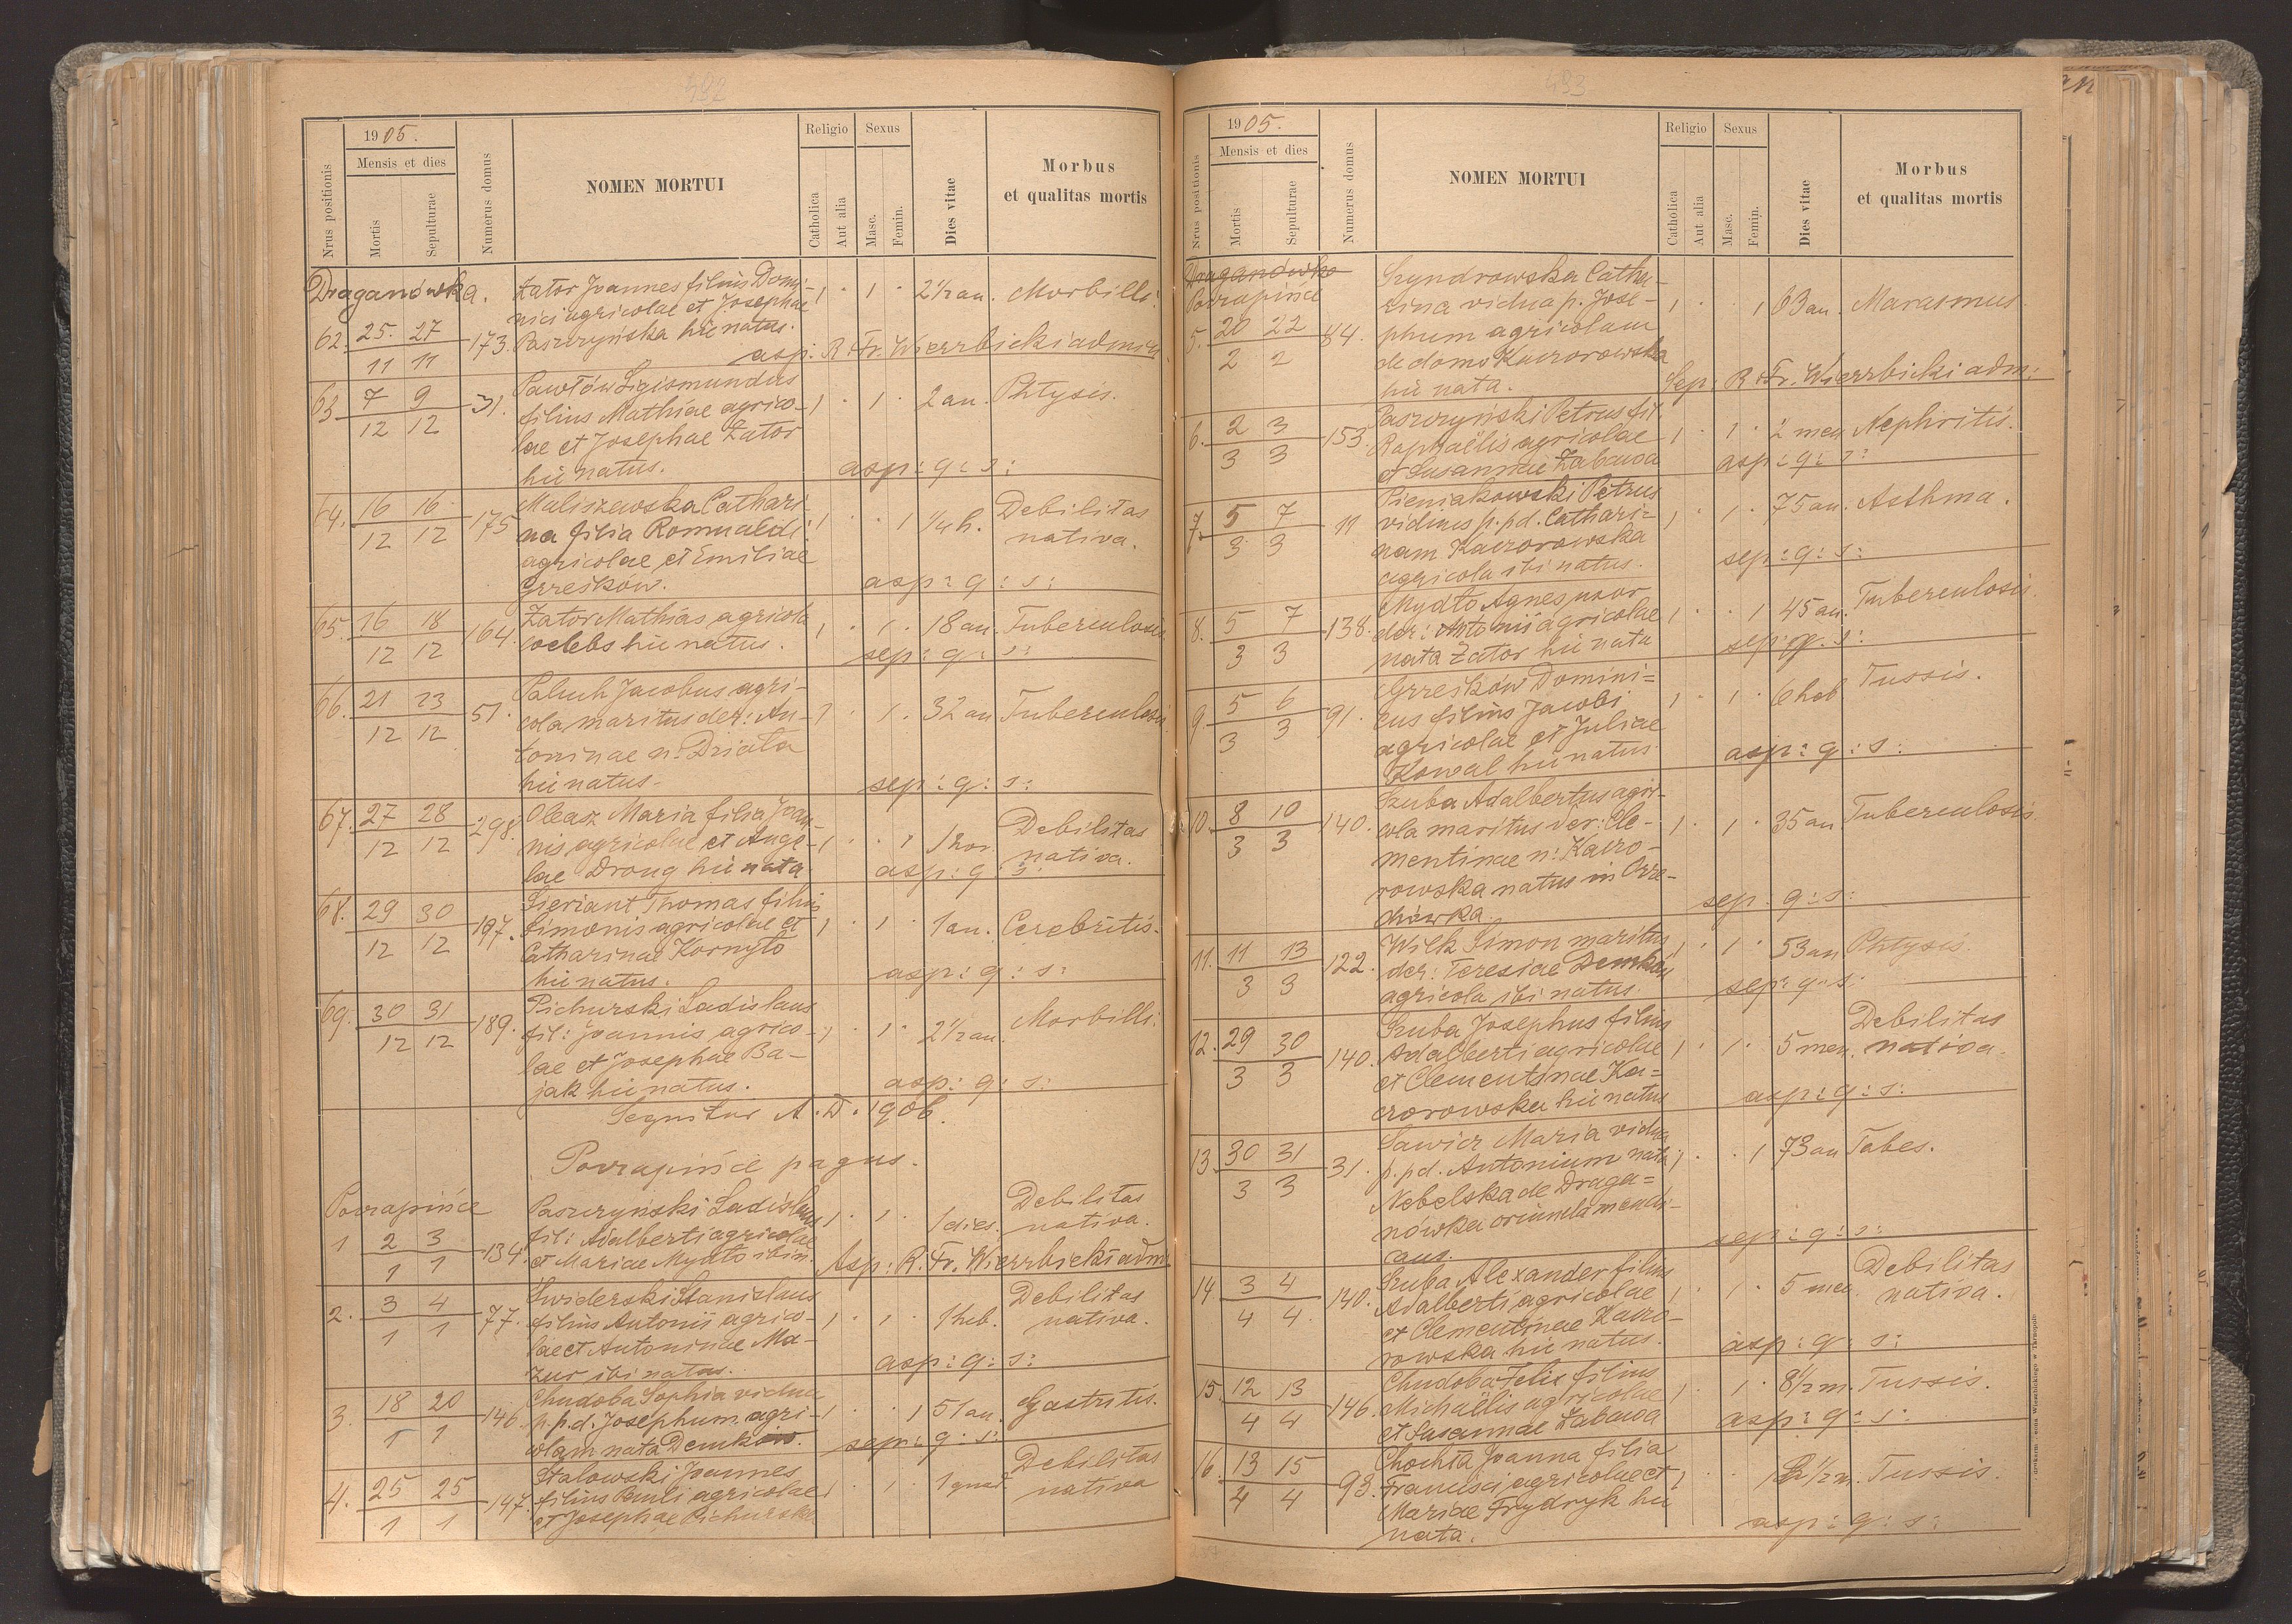 492
1905.
Religio
Sexus
Mensis et dies
Nrus positionis
Mortis
Sepulturae
Numerus domus
NOMEN MORTUI
Catholica
Aut alia
Masc.
Femin.
Dies vitae
Morbus
et qualitas mortis
Draganówka.
Zator Joannes filius Domi-
nici agricolae et Josephae
62. 25. 27 173. Paszczyńska hic natus. 1 · 1 · 2 1/2 an. Morbilli.
11 11
asp: R. Fr. Wierzbicki adm:
Pawłów Sigismundus
63 7 9 31. filius Mathiae agrico- 1 · 1 · 2 an. Phtysis.
12 12
lae et Josephae Zator
hic natus. asp: q: s:
Maliszewska Cathari-
64. 16 16 175 na filia Romualdi 1 · · 1 1/4 h. Debilitas
12 12 nativa.
agricolae et Emiliae
Grześków. asp: q: s:
65. 16 18 164. Zator Mathias agricola 1 · 1 · 18 an. Tuberculosis
12 12
coelebs hic natus. sep: q: s:
Paluch Jacobus agri-
66. 21 23 51. cola maritus der: An- 1 · 1 · 32 an Tuberculosis
12 12
toninae n: Dziata
hic natus. sep: q: s:
67. 27 28 298. Oleasz Maria filia Joan-
12 12
nis agricolae et Ange- 1 · · 1 1 hor. Debilitas
lae Drong hic nata nativa.
asp: q: s:
68. 29 30 197. Sieriant Thomas filius
12 12
Simonis agricolae et 1 · 1 · 1 an. Cerebritis.
Catharinae Kornyło
hic natus. asp: q: s:
69. 30 31 189. Pichurski Ladislaus
12 12
fil: Joannis agrico- 1 · 1 · 2 1/2 an. Morbilli.
lae et Josephae Ba-
jak hic natus. asp: q: s:
Sequitur A. D. 1906.
Poczapińce pagus.
Poczapińce
Paszczyński Ladislaus 1 · 1 · 1 dies. Debilitas
1 2 3 134. fil: Adalberti agricolae nativa.
1 1
et Mariae Mydło ibi n. Asp: R. Fr. Wierzbicki adm:
Świderski Stanislaus
2. 3 4 77. filius Antonii agrico- 1 · 1 · 1 heb. Debilitas
1 1 nativa.
lae et Antoninae Ma-
zur ibi natus. asp: q: s:
3. 18 20 146. Chudoba Sophia vidua
1 1
p. p. d. Josephum agri- 1 · · 1 51 an. Gastritis.
colam nata Demków. sep: q: s:
4. 25 25 147. Stalowski Joannes
1 1
filius Pauli agricolae 1 · 1 · 1 quad. Debilitas
et Josephae Pichurska nativa
493
1905.
Religio
Sexus
Mensis et dies
Nrus positionis
Mortis
Sepulturae
Numerus domus
NOMEN MORTUI
Catholica
Aut alia
Masc.
Femin.
Dies vitae
Morbus
et qualitas mortis
Draganówka
Poczapińce
Szyndrowska Catha-
rina vidua p. Jose- 1 · · 1 63 an. Marasmus.
5. 20 22 84. phum agricolam
2 2
de domo Kaczorowska
hic nata. Sep: R. Fr. Wierzbicki adm:
Paszczyński Petrus fil.
6. 2 3 153. Raphaëlis agricolae 1 · 1 · 2 men Nephritis.
3 3
et Susannae Zabawa asp: q: s:
Pieniakowski Petrus
7. 5 7 11 viduus p. pd. Cathari- 1 · 1 · 75 an. Asthma.
3 3
nam Kaczorowska
agricola ibi natus. sep: q: s:
Mydło Agnes uxor
8. 5 7 138. der: Antonii agricolae 1 · · 1 45 an. Tuberculosis.
3 3
nata Zator hic nata sep: q. s:
Grześków Domini-
9. 5 6 91. cus filius Jacobi 1 · 1 · 6 heb Tussis.
3 3
agricolae et Juliae
Kowal hic natus. asp: q: s:
Szuba Adalbertus agri-
10. 8 10 140. cola maritus der: Cle- 1 · 1 · 35 an Tuberculosis.
3 3
mentinae n: Kaczo-
rowska natus in Orze-
chówka. sep: q: s:
11. 11 13 122. Wilk Simon maritus 1 · 1 · 53 an Phtysis.
3 3
der: Teresiae Demków
agricola ibi natus. sep: q: s:
Szuba Josephus filius
12. 29 30 140. Adalberti agricolae 1 · 1 · 5 men. Debilitas
3 3 nativa.
et Clementinae Ka-
czorowska hic natus asp: q: s:
Sawicz Maria vidua
13. 30 31 31. p. pd. Antonium nata 1 · · 1 73 an Tabes.
3 3
Nebelska de Draga-
nówka oriunda mendi-
cans. sep: q: s:
14 3 4 140. Szuba Alexander filius
4 4
Adalberti agricolae 1 · 1 · 5 men. Debilitas
et Clementinae Kaczo- nativa.
rowska hic natus. asp: q: s:
15. 12 13 146. Chudoba Felix filius
4 4
Michaëlis agricolae 1 · 1 · 8 1/2 m. Tussis.
et Susannae Zabawa asp: q: s:
16. 13 15 93. Chochła Joanna filia
4 4
Francisci agricolae et 1 · · 1 1/2 m. Tussis.
Mariae Frydryk hic
nata. asp: q: s: